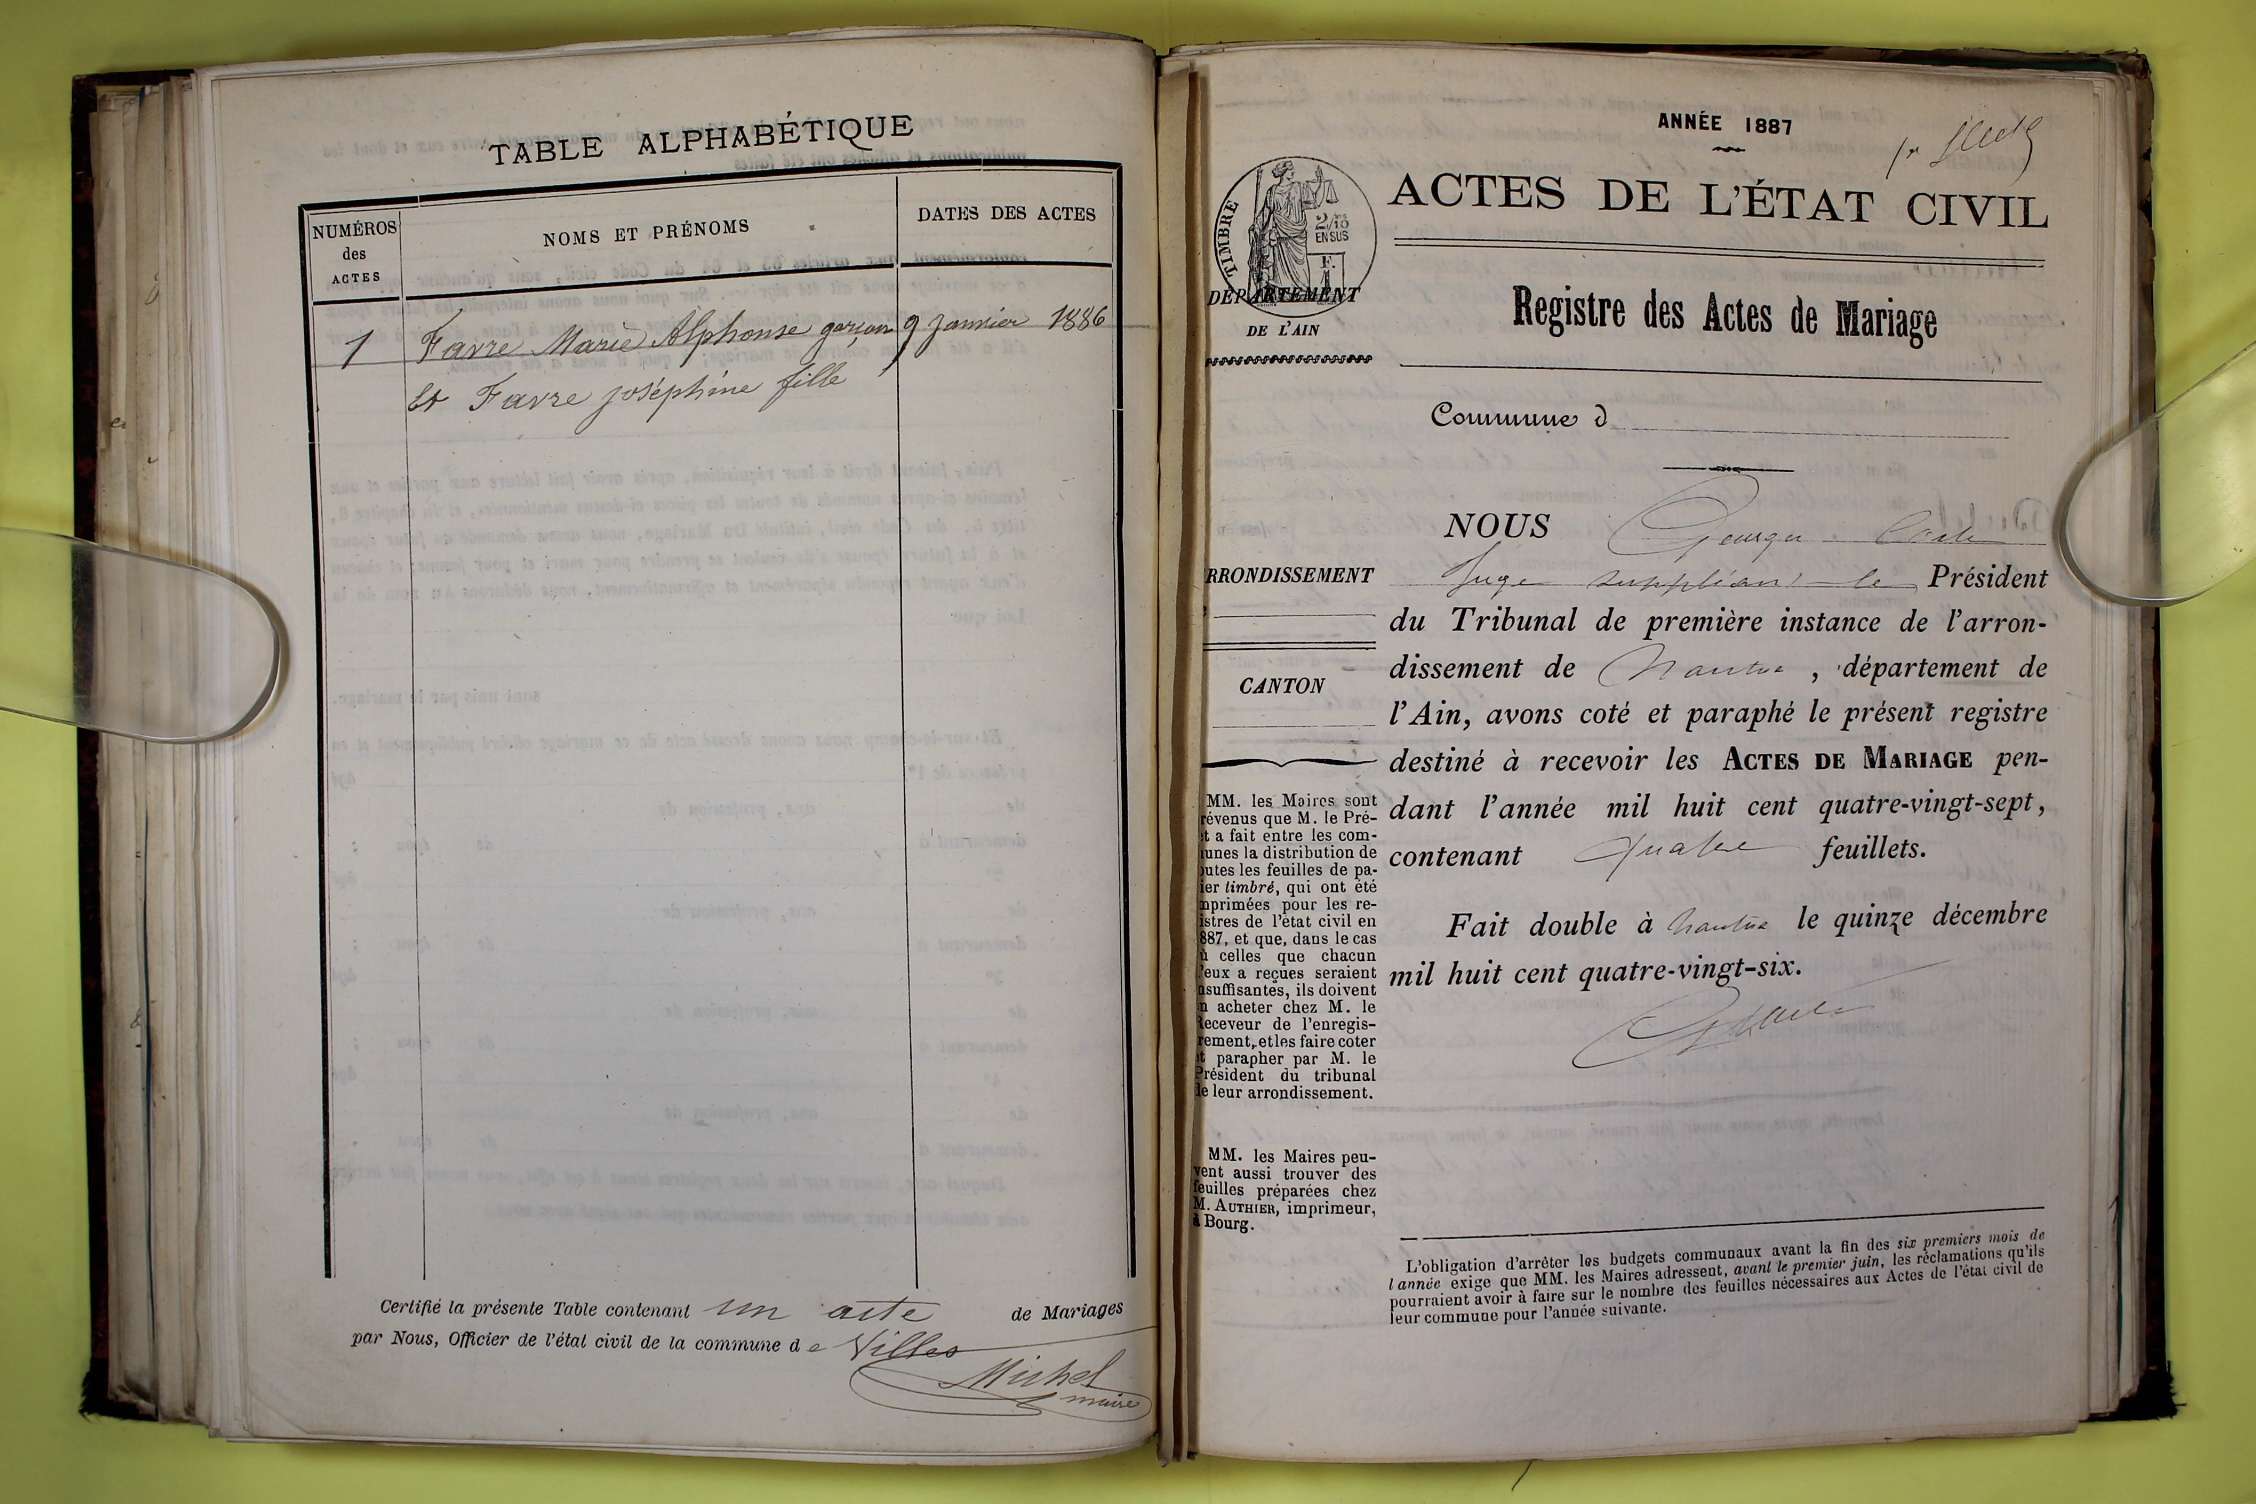 TABLE ALPHABÉTIQUE
NUMÉROS
des
ACTES
NOMS ET PRÉNOMS
DATES DES ACTES
1
Favre Marie Alphonse garçon
9 Janvier 1886
et Favre joséphine fille
Certifié la présente Table contenant un acte de Mariages
par Nous, Officier de l'état civil de la commune de Villes
Michel
maire
ANNÉE 1887
ACTES DE L'ÉTAT CIVIL
TIMBRE
2/10
EN SUS
DÉPARTEMENT
DE L'AIN
Registre des Actes de Mariage
Commune d
RRONDISSEMENT
CANTON
MM. les Maires sont
révenus que M. le Pré-
t a fait entre les com-
unes la distribution de
outes les feuilles de pa-
ier timbré, qui ont été
mprimées pour les re-
istres de l'état civil en
887, et que, dans le cas
ù celles que chacun
'eux a reçues seraient
nsuffisantes, ils doivent
n acheter chez M. le
Receveur de l'enregis-
rement, et les faire coter
t parapher par M. le
Président du tribunal
de leur arrondissement.
MM. les Maires peu-
vent aussi trouver des
feuilles préparées chez
M. AUTHIER, imprimeur,
à Bourg.
NOUS Georges
Juge suppléant le Président
du Tribunal de première instance de l'arron-
dissement de Nantua, département de
l'Ain, avons coté et paraphé le présent registre
destiné à recevoir les ACTES DE MARIAGE pen-
dant l'année mil huit cent quatre-vingt-sept,
contenant quatre feuillets.
Fait double à Nantua le quinze décembre
mil huit cent quatre-vingt-six.
L'obligation d'arrêter les budgets communaux avant la fin des six premiers mois de
l'année exige que MM. les Maires adressent, avant le premier juin, les réclamations qu'ils
pourraient avoir à faire sur le nombre des feuilles nécessaires aux Actes de l'état civil de
leur commune pour l'année suivante.